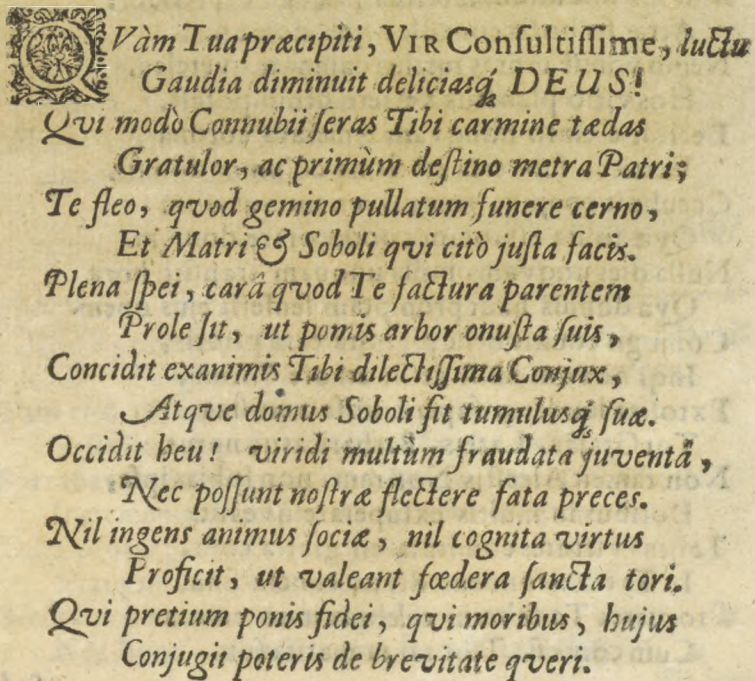 QVàm Tua præcipiti, VIR Conſultiſſime, luctu
Gaudia diminuit deliciasq́ DEUS!
Qvi modò Connubii ſeras Tibi carmine tædas
Gratulor, ac primùm deſtino metra Patri;
Te fleo, qvod gemino pullatum funere cerno,
Et Matri & Soboli qvi citò juſta facis.
Plena ſpei, carâ qvod Te factura parentem
Prole ſit, ut pomis arbor onuſta ſuis,
Concidit exanimis Tibi dilectiſſima Conjux,
Atqve domus Soboli fit tumulusq́ ſuæ.
Occidit heu! viridi multùm fraudata juventâ,
Nec poſſunt noſtræ flectere fata preces.
Nil ingens animus ſociæ, nil cognita virtus
Proficit, ut valeant fœdera ſancta tori.
Qvi pretium ponis fidei, qvi moribus, hujus
Conjugii poteris de brevitate qveri.